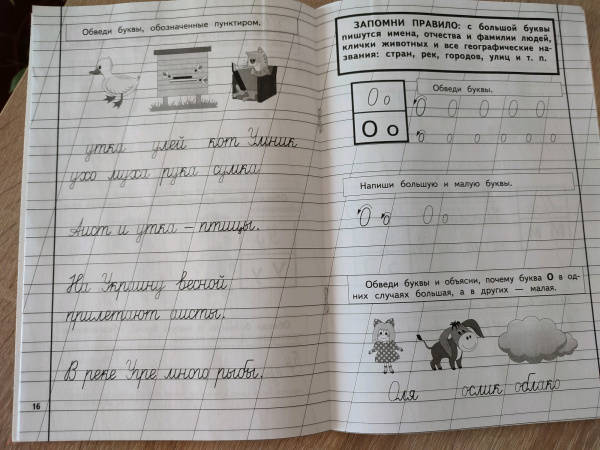 Обведи буквы, обозначенные пунктиром.
утка улей кот Умник
ухо муха рука сумка
Аист и утка – птицы.
На Украину весной
прилетают аисты.
В реке Упре много рыбы.
16
ЗАПОМНИ ПРАВИЛО: с большой буквы
пишутся имена, отчества и фамилии людей,
клички животных и все географические на-
звания: стран, рек, городов, улиц и т. п.
О о
О о
Обведи буквы.
О О О О О
о о о о о
Напиши большую и малую буквы.
О о О о
Обведи буквы и объясни, почему буква О в од-
них случаях большая, а в других — малая.
Оля ослик облако